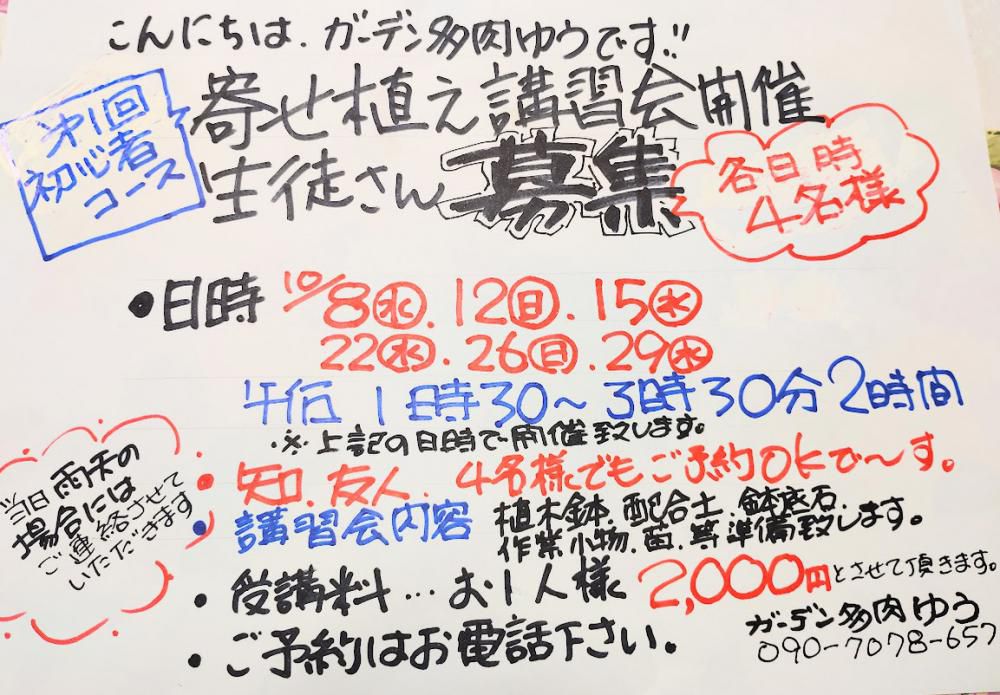 こんにちは、ガーデン多肉ゆうです!!
第1回
初心者
コース
寄せ植え講習会開催
生徒さん募集
各日時
4名様
・日時 10/8㊌.12㊐.15㊌
22㊌.26㊐.29㊌
午后 1時30〜3時30分 2時間
・※上記の日時で開催致します。
・知.友人.4名様でもご予約OKで〜す。
・講習会内容 植木鉢.配合土.鉢底石
作業小物.苗.等準備致します。
当日雨天の
場合には
ご連絡させて
いただきます
・受講料…お1人様 2,000円とさせて頂きます。
・ご予約はお電話下さい。
ガーデン多肉ゆう
090-7078-657